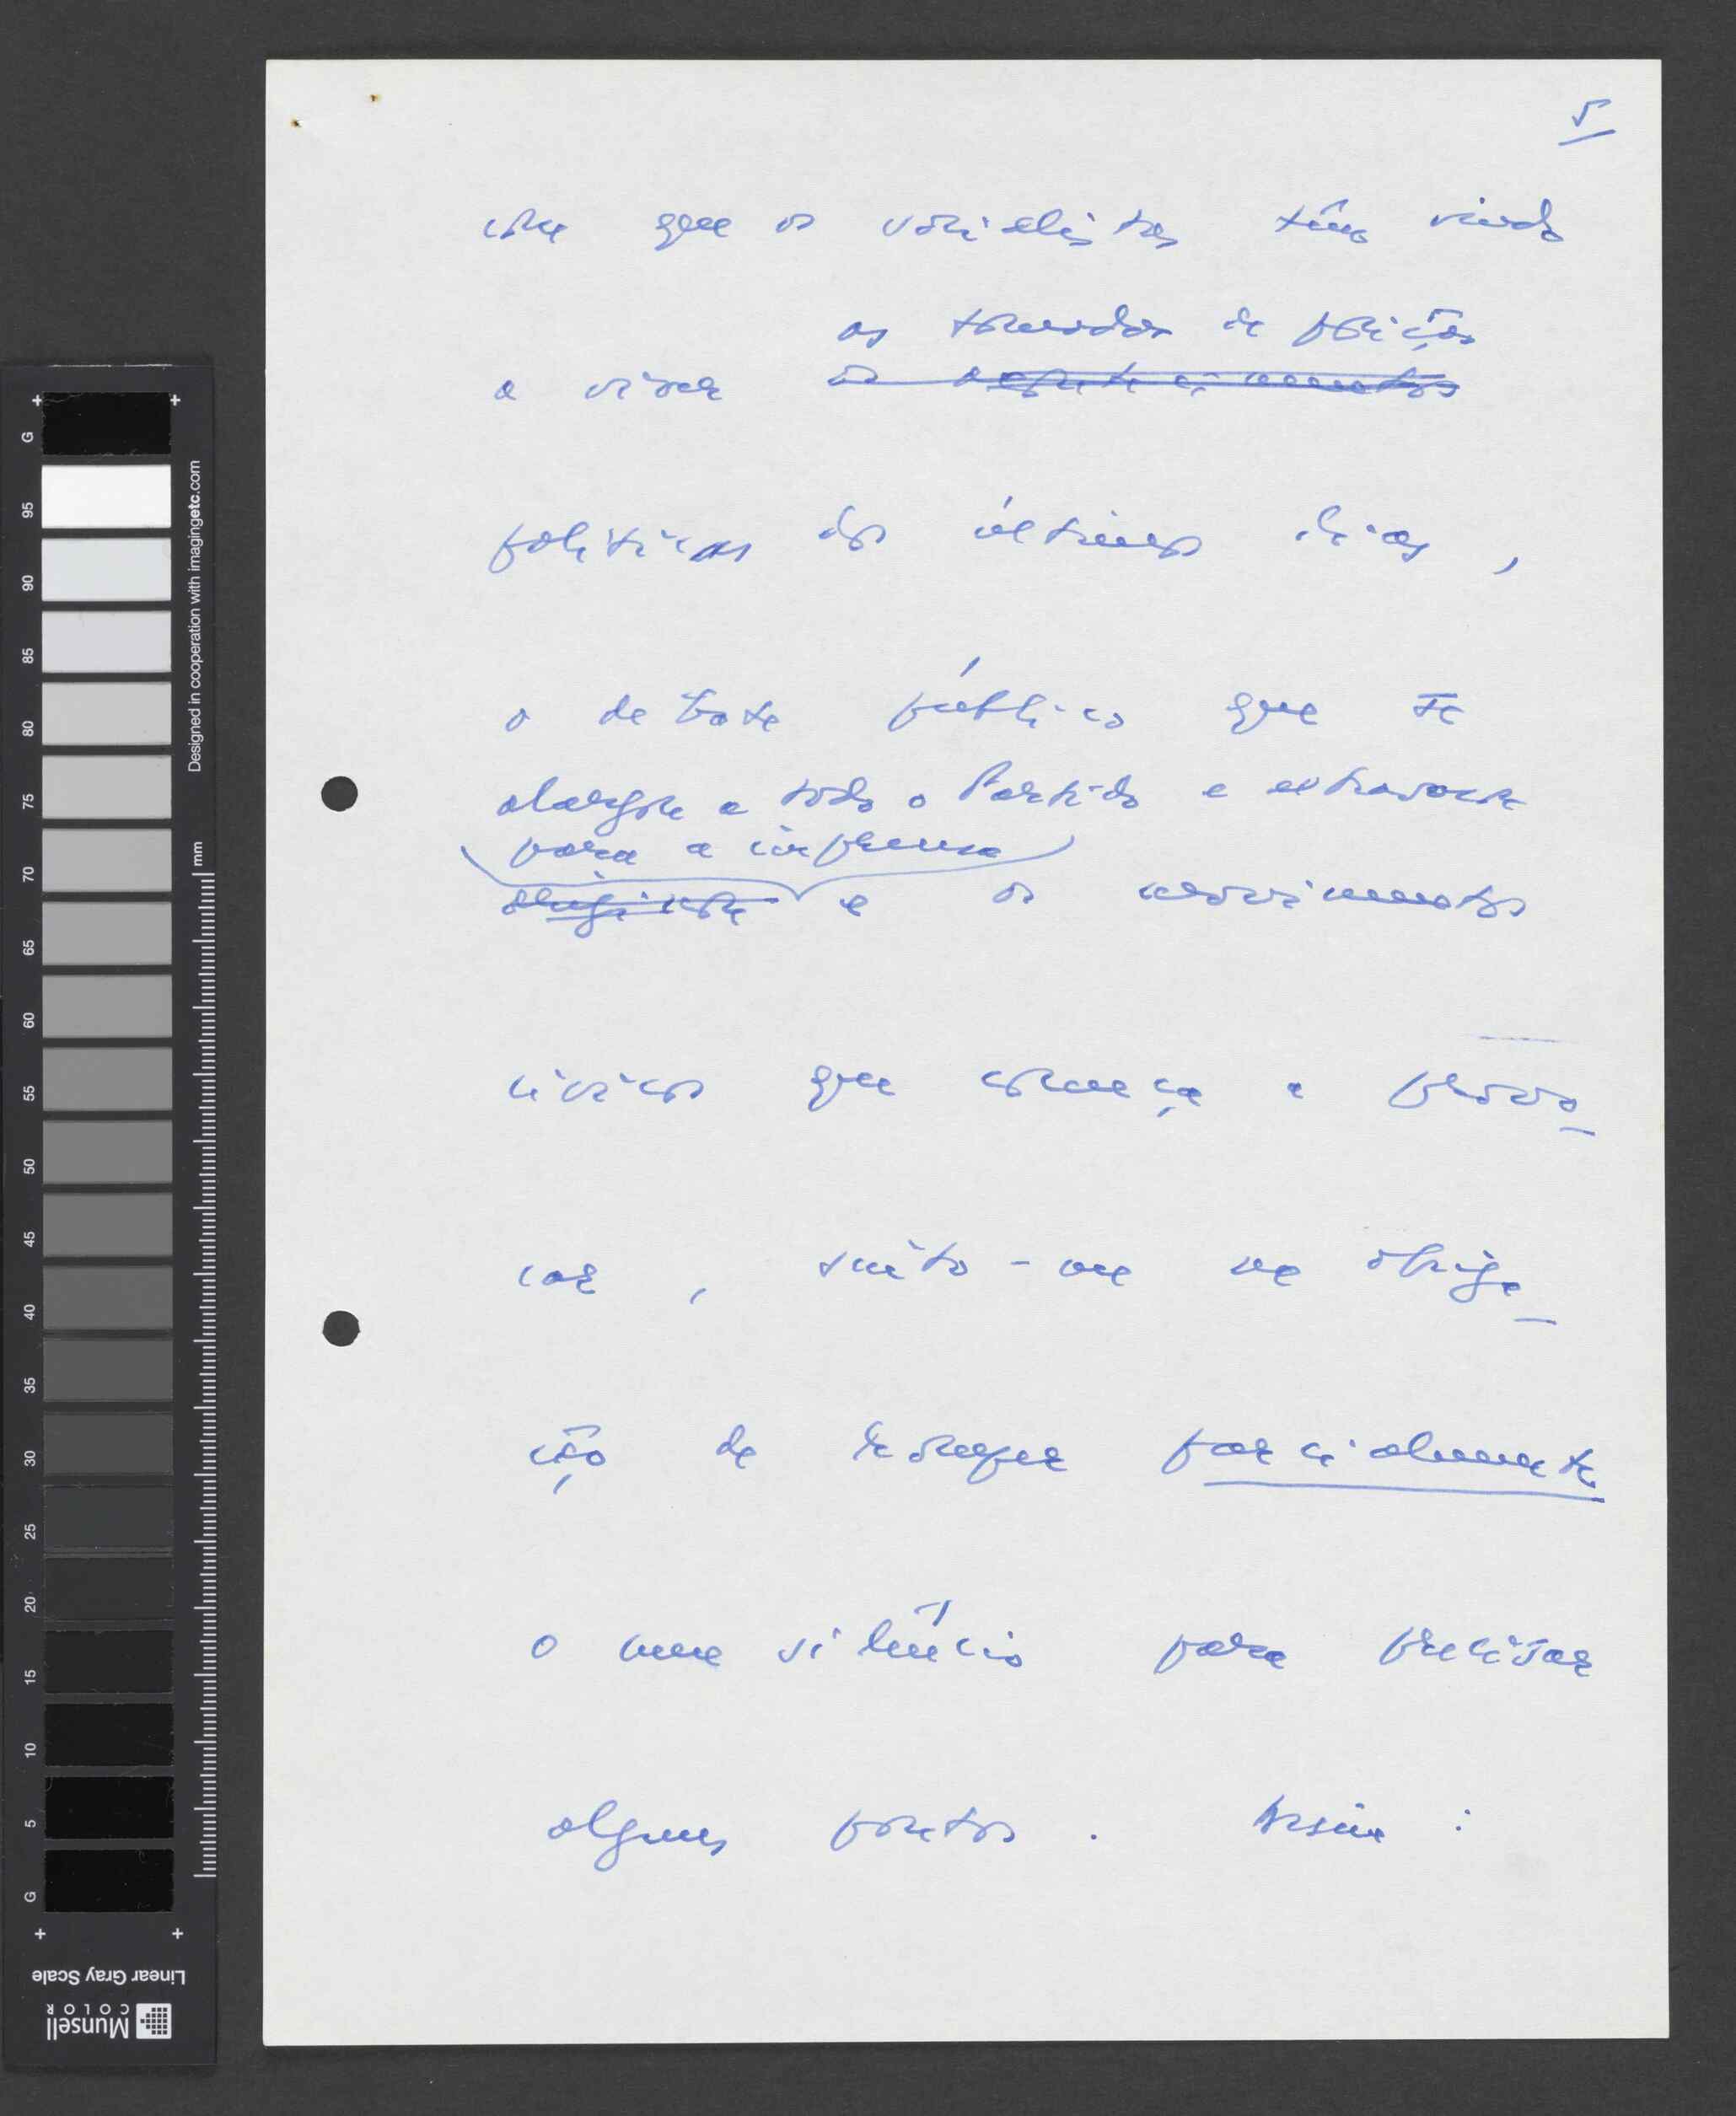 5
com que os socialistas têm vindo
as tomadas de posição
a viver os acontecimentos
políticas dos últimos dias,
o debate público que se
alargou a todo o Partido e extravasou
para a imprensa
e os movimentos
cívicos que começa a provo_
car, sinto-me na obriga_
ção de romper parcialmente
o meu silêncio para precisar
alguns pontos. Assim:
G
95
90
85
80
75
70
65
60
55
50
45
40
35
30
25
20
15
10
5
G
mm
Designed in cooperation with imagingetc.com
Linear Gray Scale
Munsell
COLOR